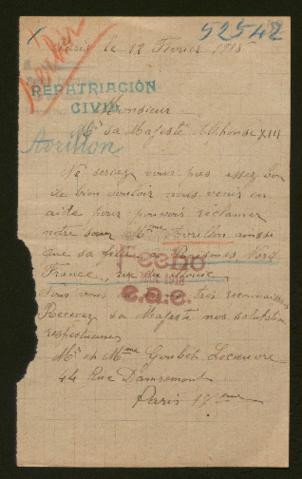 52542
Paris le 12 Février 1918
REPATRIACIÓN
CIVIL
Monsieur
Avrillon
Mr sa Majesté Alphonse XIII
Ne seriez vous pas assez bon
de bien vouloir nous venir en
aide pour pouvoir réclamer
notre sœur Mme Avrillon ainsi
que sa fille Nord
France, rue
Fecho
1918
e.a.e.
vous très reconnaissant
Recevez sa Majesté nos salutations
respectueuses
Mr et Mme Goubet Lecœuvre
44 Rue Damremont
Paris